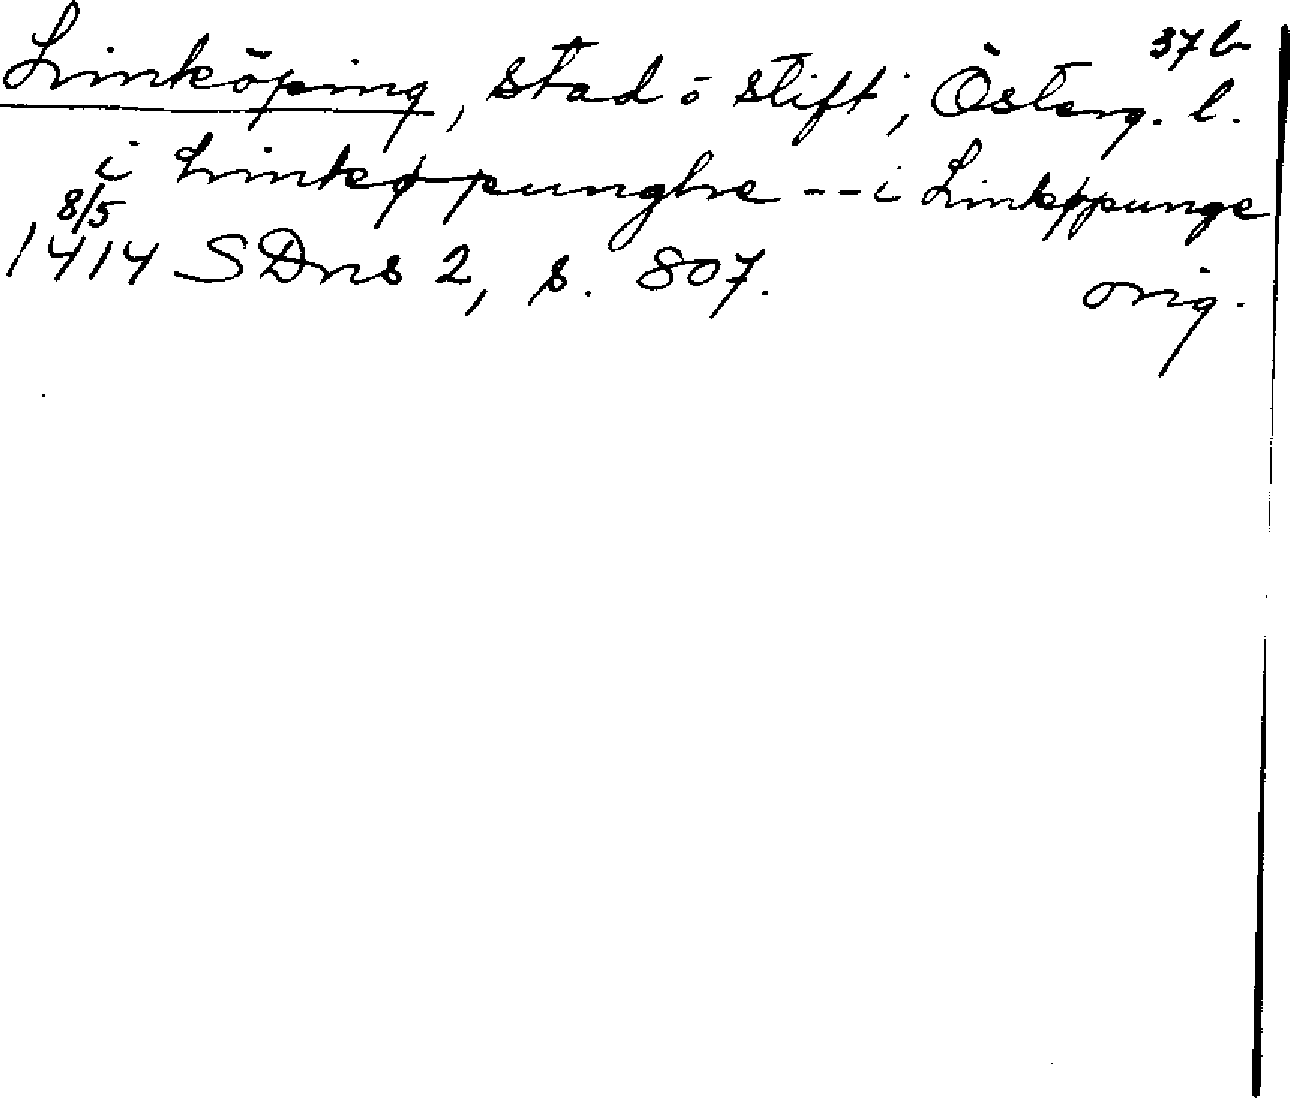 37 b
Linköping, stad o stift, Österg. l.
i Linkøpunghe -- i Linkøpunge
8/5
1414 SDns 2, s. 807. orig.